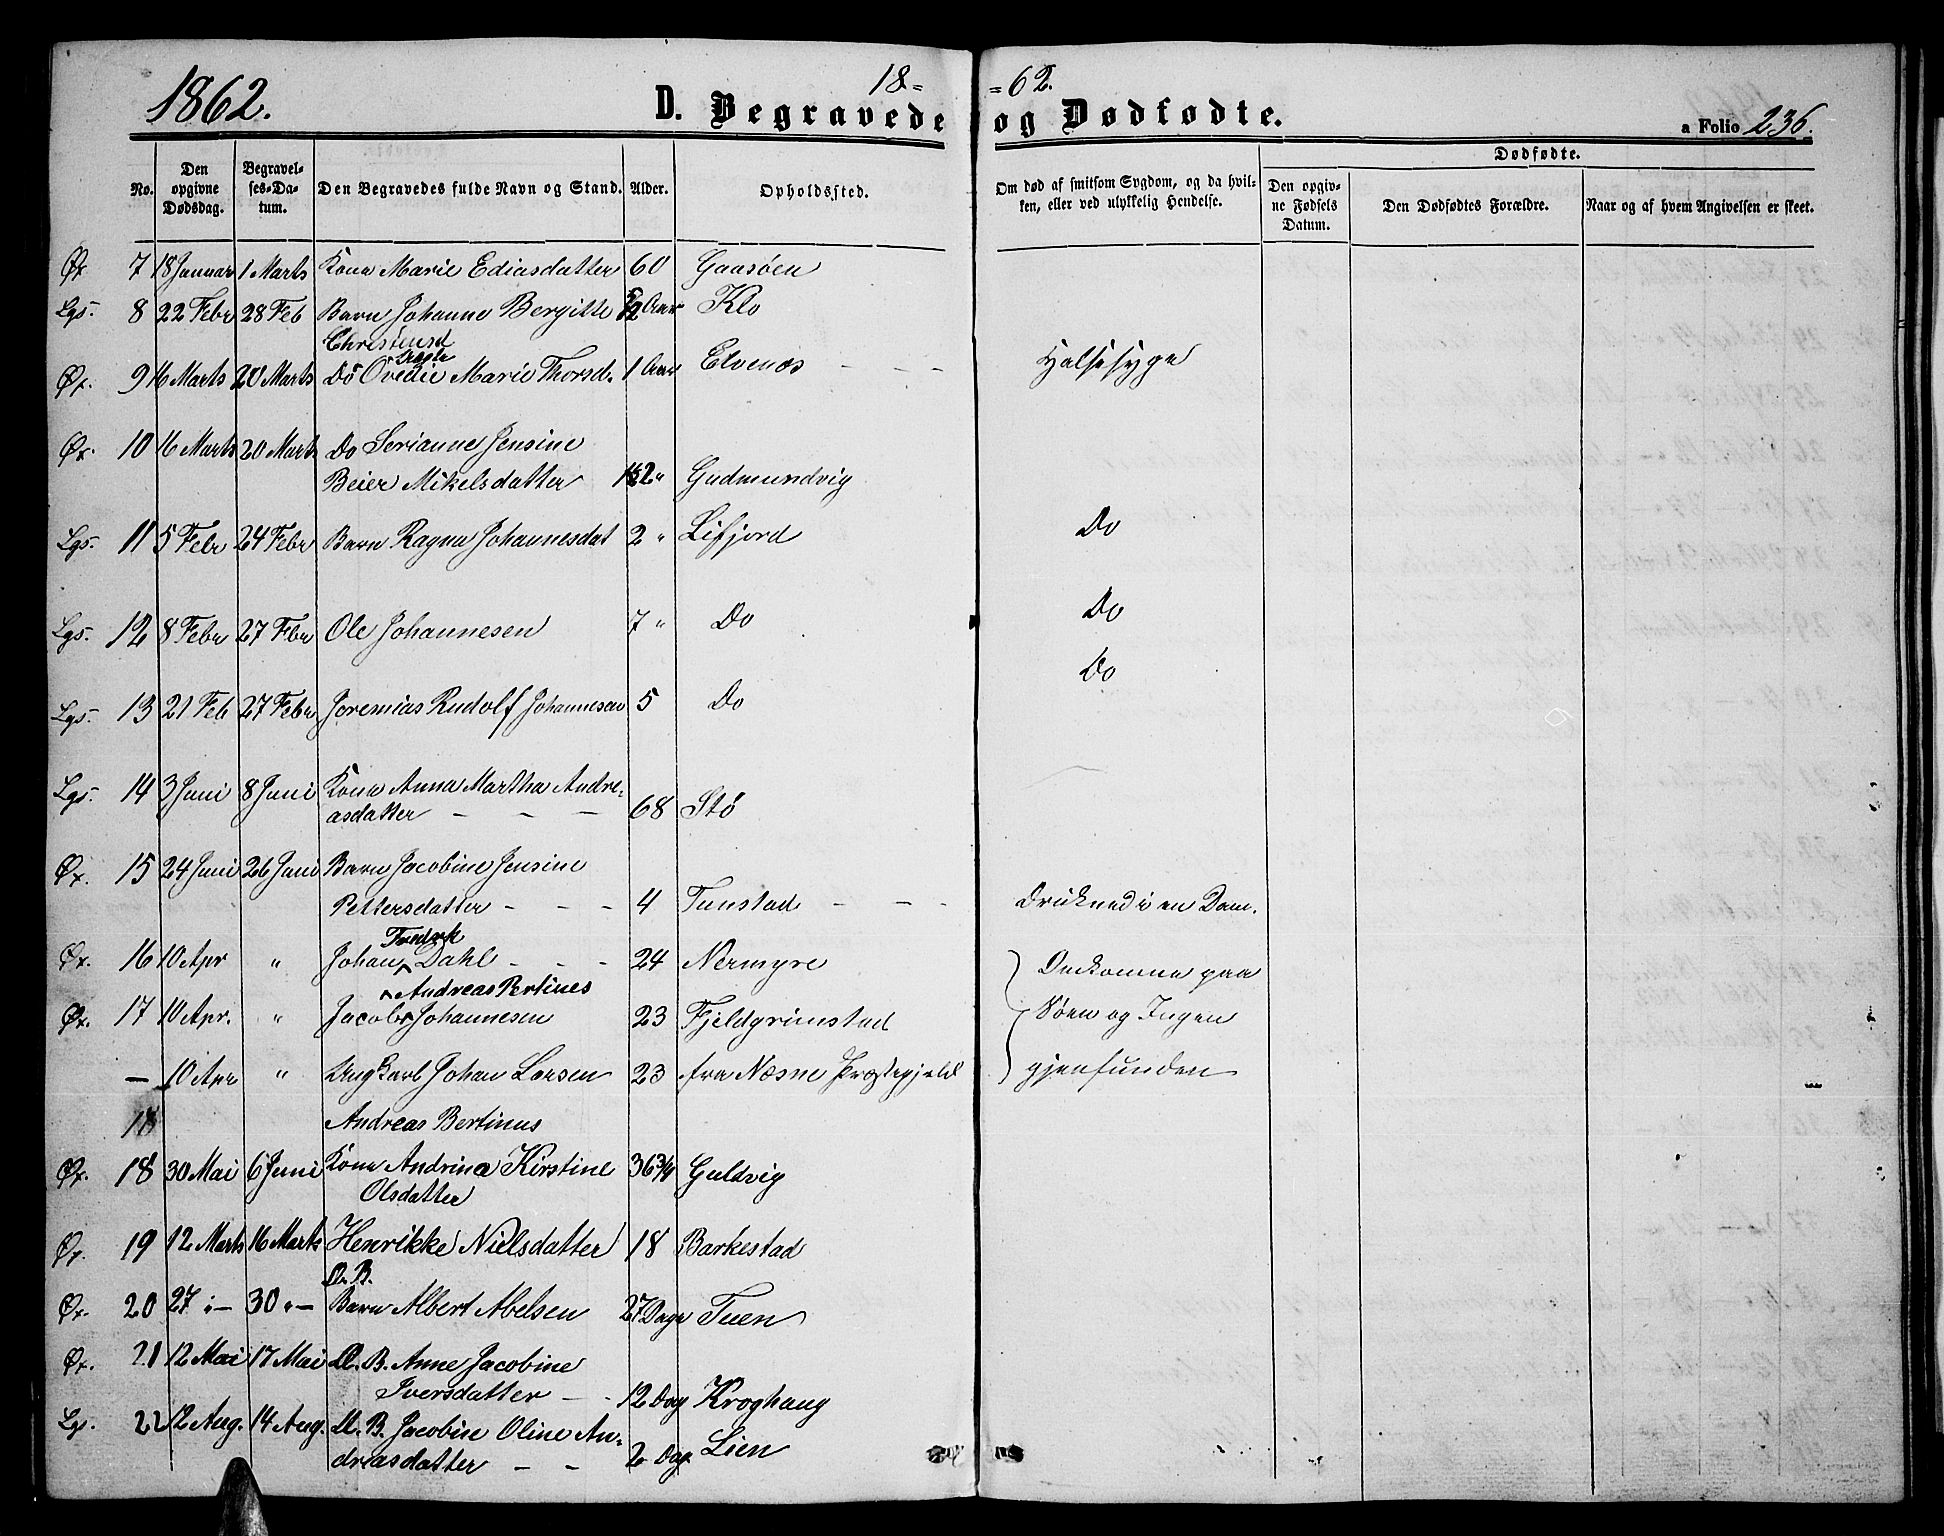 1862.
18 =
= 62.
D. Begravede
og Dødfødte.
a Folio 236.
No.
Den opgivne Dødsdag.
Begravelses-Datum.
Den Begravedes fulde Navn og Stand.
Alder.
Opholdssted.
Om død af smitsom Sygdom, og da hvilken, eller ved ulykkelig Hendelse.
Dødfødte.
Den opgivne Fødsels Datum.
Den Dødfødtes Forældre.
Naar og af hvem Angivelsen er skeet.
Øx 7 18 Januar 1 Marts Kone Marie Ediasdatter 60 Gaasøen
Lgs. 8 22 Febr 28 Feb Barn Johanne Bergitte 1/2 Aar Klo
Christensd
Øx. 9 16 Marts 20 Marts Do Ovedie Marie Thorsd. 1 Aar Elvenæs - - - Halssyge
Øx. 10 16 Marts 20 Marts Do Serianne Jensine
Beier Mikelsdatter 1 1/2 " Gudmundvig
Lgs. 11 5 Febr 24 Febr Barn Ragna Johannesdat 2 " Lifjord Do
Lgs. 12 8 Febr 27 Fbr Ole Johannesen 7 " Do Do
Lgs. 13 21 Feb 27 Febr Jeremias Rudolf Johannesen 5 Do Do
Lgs. 14 3 Juni 8 Juni Kone Anna Martha Andre-
asdatter - - - 68 Stø
Øx. 15 24 Juni 26 Juni Barn Jacobine Jensine
Pettersdatter - - - 4 Tunstad - - - Drukned i en Dam.
Øx. 16 10 Apr " Johan Fredrek Dahl - - - 24 Nermyre Omkomne paa
Andreas Bertines
Øx. 17 10 Apr. " Jacob Johannesen 23 Fjeldgrimstad Søen og Ingen
- 10 Apr " Ungkarl Johan Larsen 23 fra Næsne Præstegjeld gjenfunden
18 Andreas Bertinus
Øx. 18 30 Mai 6 Juni Kone Andrina Kirstine 36 3/4 Guldvig
Olsdatter
Øx. 19 12 Marts 16 Marts Henrikke Nielsdatter 18 Barkestad
Øx. 20 27 " - 30 " - Barn Albert Abelsen 27 Dage Tuen
Øx. 21 12 Mai 17 Mai U. B. Anne Jacobine
Iversdatter - - 12 Dag Kroghaug
Lgs. 22 12 Aug. 14 Aug. U. B. Jacobine Oline An-
dreasdatter - - 2 Dag Lien